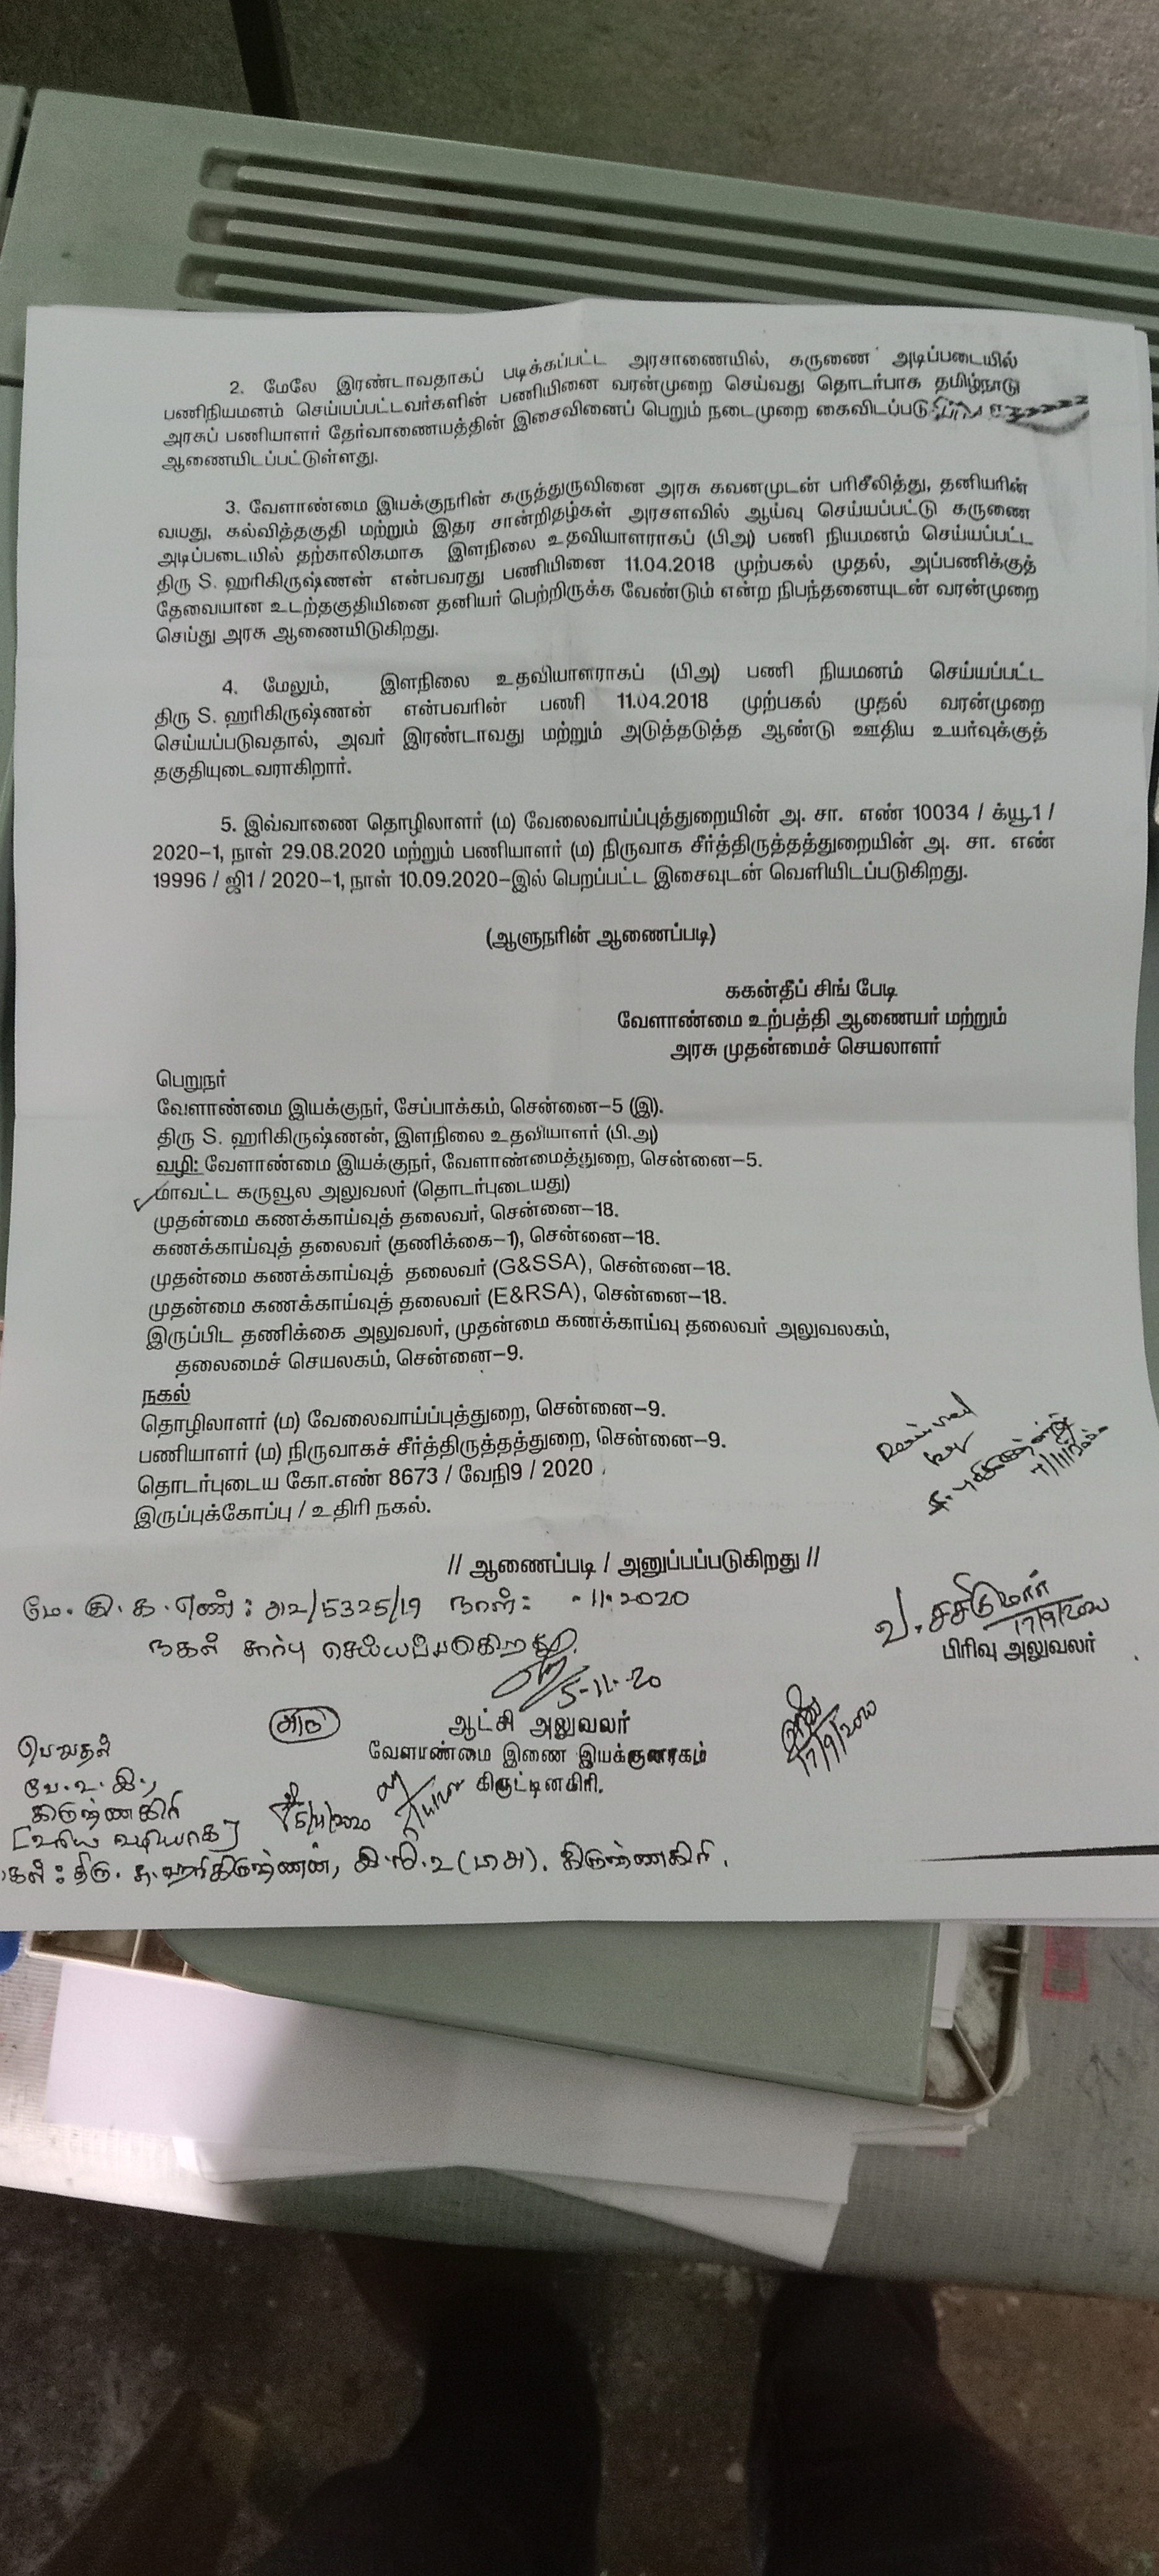 2. மேலே இரண்டாவதாகப் படிக்கப்பட்ட அரசாணையில், கருணை அடிப்படையில்
பணிநியமனம் செய்யப்பட்டவர்களின் பணியினை வரன்முறை செய்வது தொடர்பாக தமிழ்நாடு
அரசுப் பணியாளர் தேர்வாணையத்தின் இசைவினைப் பெறும் நடைமுறை கைவிடப்படு
ஆணையிடப்பட்டுள்ளது.
3. வேளாண்மை இயக்குநரின் கருத்துருவினை அரசு கவனமுடன் பரிசீலித்து, தனியரின்
வயது, கல்வித்தகுதி மற்றும் இதர சான்றிதழ்கள் அரசளவில் ஆய்வு செய்யப்பட்டு கருணை
அடிப்படையில் தற்காலிகமாக இளநிலை உதவியாளராகப் (பிஅ) பணி நியமனம் செய்யப்பட்ட
திரு S. ஹரிகிருஷ்ணன் என்பவரது பணியினை 11.04.2018 முற்பகல் முதல், அப்பணிக்குத்
தேவையான உடற்தகுதியினை தனியர் பெற்றிருக்க வேண்டும் என்ற நிபந்தனையுடன் வரன்முறை
செய்து அரசு ஆணையிடுகிறது.
4. மேலும், இளநிலை உதவியாளராகப் (பிஅ) பணி நியமனம் செய்யப்பட்ட
திரு S. ஹரிகிருஷ்ணன் என்பவரின் பணி 11.04.2018 முற்பகல் முதல் வரன்முறை
செய்யப்படுவதால், அவர் இரண்டாவது மற்றும் அடுத்தடுத்த ஆண்டு ஊதிய உயர்வுக்குத்
தகுதியுடைவராகிறார்.
5. இவ்வாணை தொழிலாளர் (ம) வேலைவாய்ப்புத்துறையின் அ. சா. எண் 10034 / க்யூ1 /
2020–1, நாள் 29.08.2020 மற்றும் பணியாளர் (ம) நிருவாக சீர்த்திருத்தத்துறையின் அ. சா. எண்
19996 / ஜி1 / 2020–1, நாள் 10.09.2020–இல் பெறப்பட்ட இசைவுடன் வெளியிடப்படுகிறது.
(ஆளுநரின் ஆணைப்படி)
ககன்தீப் சிங் பேடி
வேளாண்மை உற்பத்தி ஆணையர் மற்றும்
அரசு முதன்மைச் செயலாளர்
பெறுநர்
வேளாண்மை இயக்குநர், சேப்பாக்கம், சென்னை–5 (இ).
திரு S. ஹரிகிருஷ்ணன், இளநிலை உதவியாளர் (பி.அ)
வழி: வேளாண்மை இயக்குநர், வேளாண்மைத்துறை, சென்னை–5.
மாவட்ட கருவூல அலுவலர் (தொடர்புடையது)
முதன்மை கணக்காய்வுத் தலைவர், சென்னை–18.
கணக்காய்வுத் தலைவர் (தணிக்கை–1), சென்னை–18.
முதன்மை கணக்காய்வுத் தலைவர் (G&SSA), சென்னை–18.
முதன்மை கணக்காய்வுத் தலைவர் (E&RSA), சென்னை–18.
இருப்பிட தணிக்கை அலுவலர், முதன்மை கணக்காய்வு தலைவர் அலுவலகம்,
தலைமைச் செயலகம், சென்னை–9.
நகல்
தொழிலாளர் (ம) வேலைவாய்ப்புத்துறை, சென்னை–9.
பணியாளர் (ம) நிருவாகச் சீர்த்திருத்தத்துறை, சென்னை–9.
தொடர்புடைய கோ.எண் 8673 / வேநி9 / 2020
இருப்புக்கோப்பு / உதிரி நகல்.
Received
by
// ஆணைப்படி / அனுப்பப்படுகிறது //
வ. சசிகுமார்
17/9/2020
பிரிவு அலுவலர்
மே. இ. க. எண்: அ2/5325/19 நாள்: -11-2020
நகல் சார்பு செய்யப்படுகிறது.
5-11-20
ஆட்சி அலுவலர்
வேளாண்மை இணை இயக்குனரகம்
கிருட்டினகிரி.
17/9/2020
பெறுதல்
வே.உ.இ.,
கிருஷ்ணகிரி
[உரிய வழியாக]
5/11/2020
நகல் : திரு. ச. ஹரிகிருஷ்ணன், இ.நி.உ (பஅ). கிருஷ்ணகிரி.